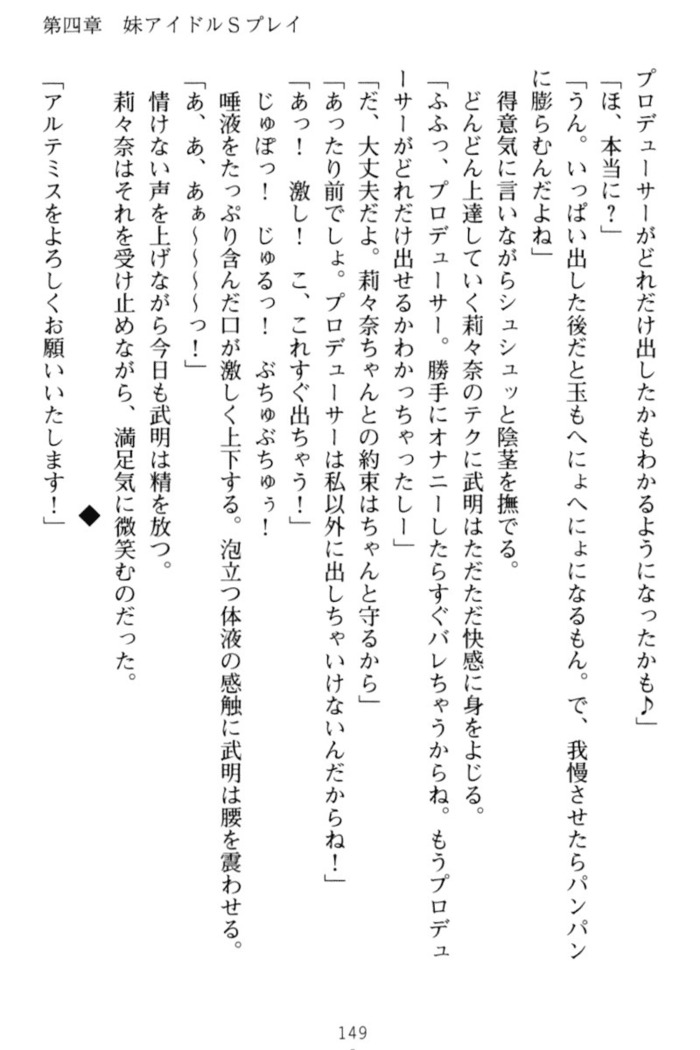 第四章　妹アイドルＳプレイ
プロデューサーがどれだけ出したかもわかるようになったかも♪」
「ほ、本当に？」
「うん。いっぱい出した後だと玉もへにょへにょになるもん。で、我慢させたらパンパン
に膨らむんだよね」
得意気に言いながらシュシュッと陰茎を撫でる。
どんどん上達していく莉々奈のテクに武明はただただ快感に身をよじる。
「ふふっ、プロデューサー。勝手にオナニーしたらすぐバレちゃうからね。もうプロデュ
ーサーがどれだけ出せるかわかっちゃったしー」
「だ、大丈夫だよ。莉々奈ちゃんとの約束はちゃんと守るから」
「あったり前でしょ。プロデューサーは私以外に出しちゃいけないんだからね！」
「あっ！　激し！　こ、これすぐ出ちゃう！」
じゅぽっ！　じゅるっ！　ぶちゅぶちゅぅ！
唾液をたっぷり含んだ口が激しく上下する。泡立つ体液の感触に武明は腰を震わせる。
「あ、あ、あぁ～～～～っ！」
情けない声を上げながら今日も武明は精を放つ。
莉々奈はそれを受け止めながら、満足気に微笑むのだった。
◆
「アルテミスをよろしくお願いいたします！」
149